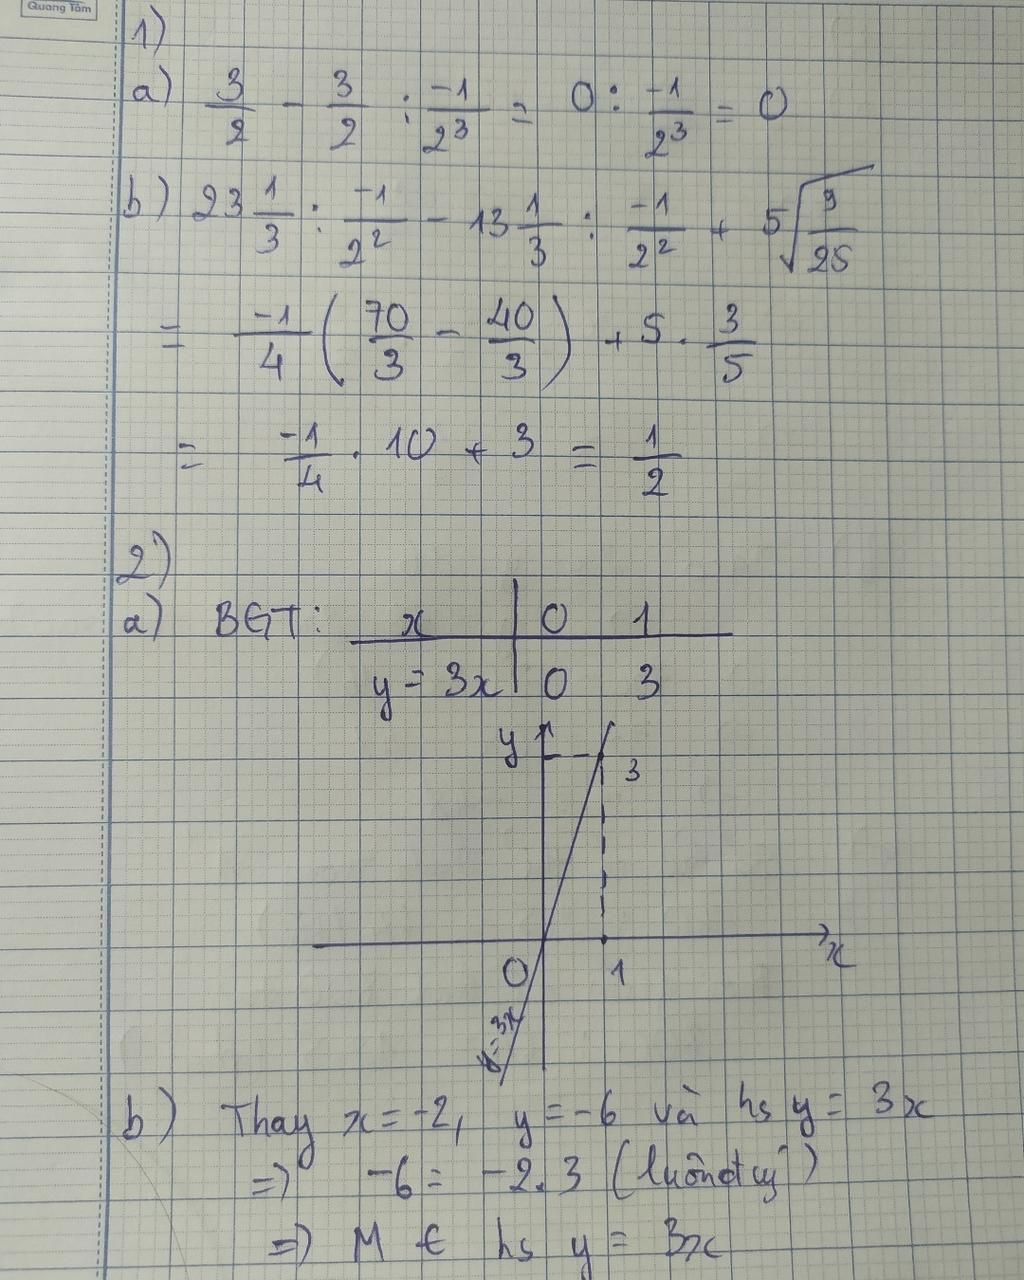 Quang Tâm
1)
a) 3/2 - 3/2 : -1/2³ = 0 : -1/2³ = 0
b) 23 1/3 : -1/2² - 13 1/3 : -1/2² + 5√(9/25)
= -1/4 (70/3 - 40/3) + 5 . 3/5
= -1/4 . 10 + 3 = 1/2
2)
a) BGT: x | 0 1
y = 3x | 0 3
y
3
0 1 x
y=3x
b) Thay x = -2, y = -6 và hs y = 3x
=) -6 = -2.3 (luôn
=) M € hs y = 3x